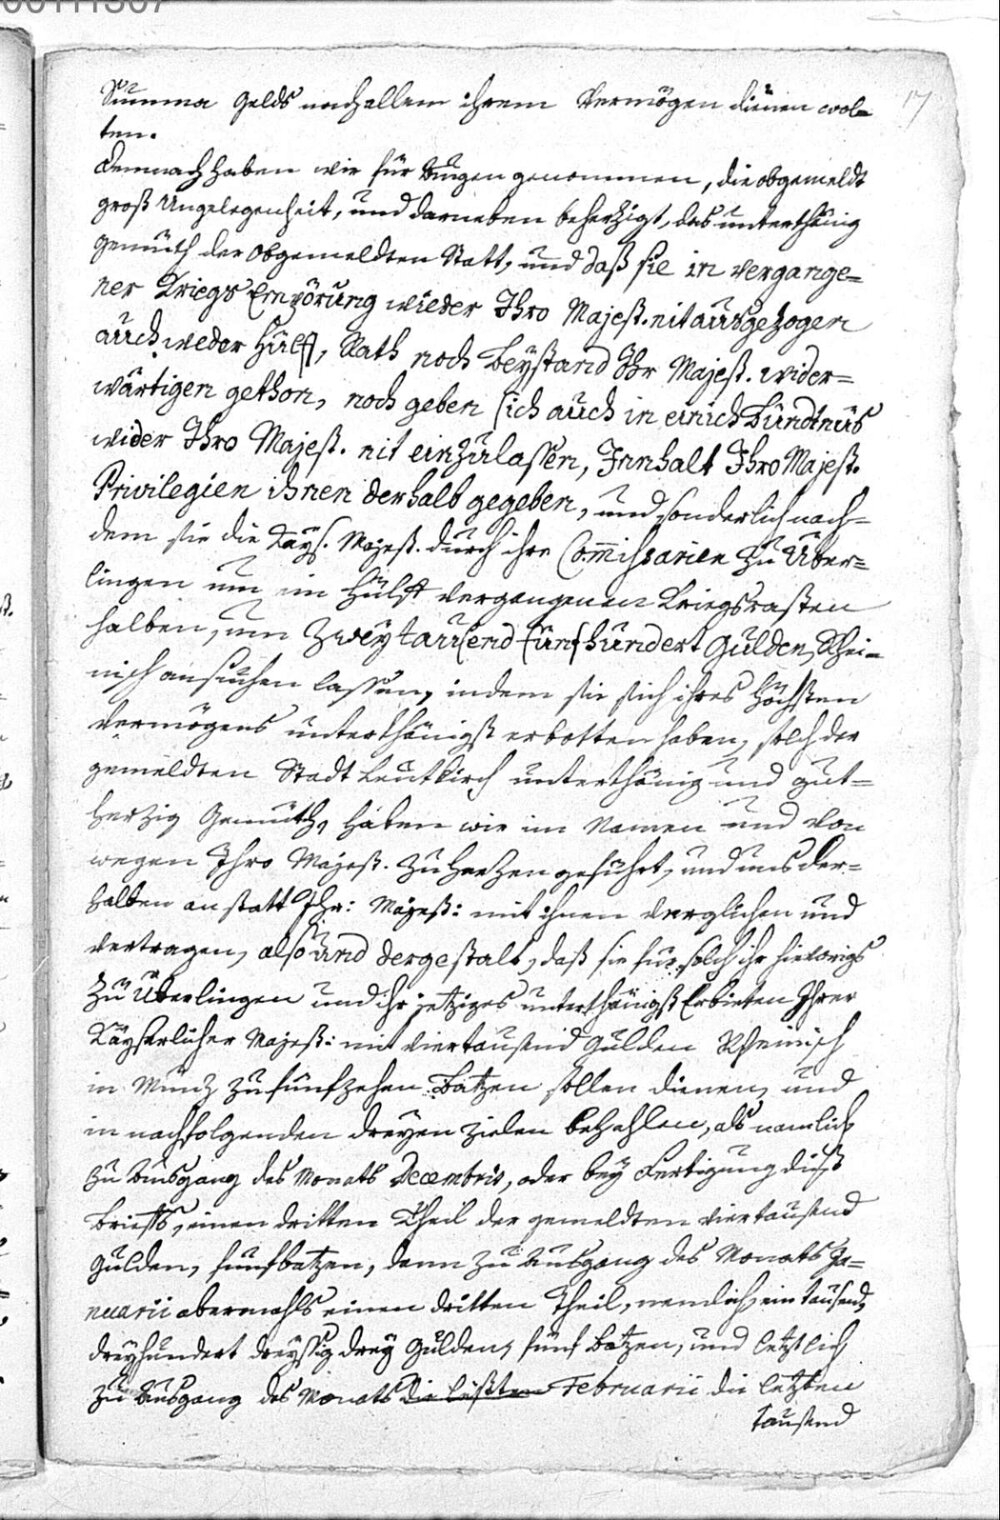 00111307
17
Summa Gelds nach allem ihrem Vermögen dienen wol-
ten.
Demnach haben wir für Augen genommen, die obgemeldt
groß Ungelegenheit, und darneben beherziget, das unterthänig
gemüth der obgemeldten Statt, und daß sie in vergange=
ner Kriegs Empörung wieder Ihro Majest. nit ausgezogen
auch weder Hülff, Rath noch Beystand Ihr Majest. wider=
wärtigen gethon, noch geben sich auch in einich Bündtnus
wider Ihro Majest. nit einzulassen, Innhalt Ihro Majest.
Privilegien ihnen derhalb gegeben, und sonderlich nach=
dem sie die Kays. Majest. durch ihre Commissarien zu Über=
lingen um ein Hülff vergangenen Kriegskosten
halben, um Zweytausend fünfhundert Gulden, Rhei=
nisch ansuchen lassen, indem sie sich ihres höchsten
Vermögens unterthänigst erbotten haben, solch der
gemeldten Stadt Leutkirch unterthänig und gut=
herzig Gemüth, haben wir im Namen und von
wegen Ihro Majest. zu Herzen geführt, und uns der=
halben an statt Ihr: Majest: mit ihnen verglichen und
vertragen, also und dergestalt, daß sie für solch ihr hievorigs
zu Überlingen und ihr jetziges unterthänigst Erbieten Ihrer
Käyserlicher Majest: mit viertausend Gulden Rheinisch
in Münz zu fünfzehen Batzen sollen dienen, und
in nachfolgenden dreyen Zielen bezahlen, als namlich
zu Ausgang des Monats Decembris, oder bey Fertigung diß
Brieffs, einen dritten Theil der gemeldten viertausend
Gulden, fünf batzen, dann zu Ausgang des Monats Ja=
nuarii abermahls einen dritten Theil, nemlich ein tausend,
dreyhundert dreyssig drey Gulden, fünf Batzen, und letztlich
zu Ausgang des Monats Februarii die letzten
tausend